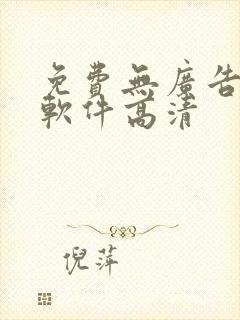 免費無廣告
軟件高清
倪萍